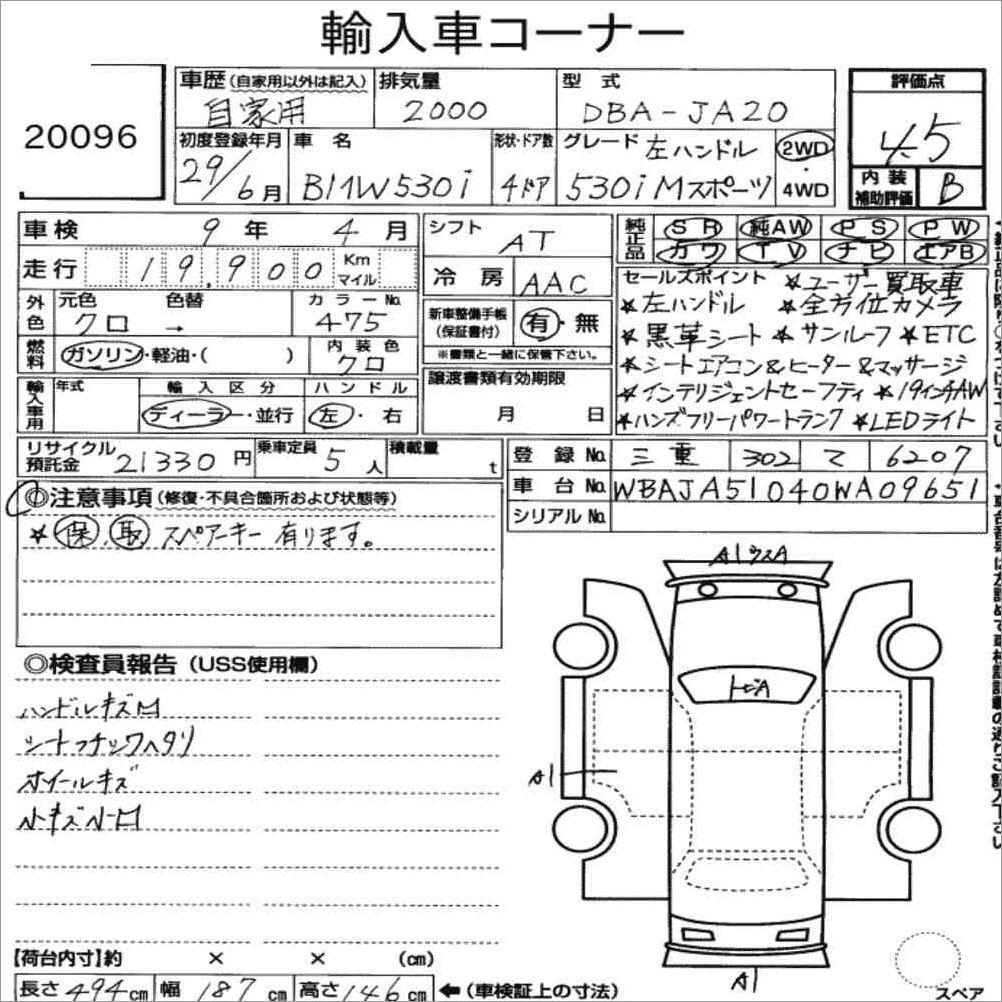 輸入車コーナー
20096
車歴(自家用以外は記入) 自家用
排気量 2000
型式 DBA-JA20
評価点 4.5
初度登録年月 29/6月
車名 BMW530i
形状・ドア数 4ドア
グレード 左ハンドル 530i Mスポーツ
2WD・4WD
内装補助評価 B
車検 9年 4月
シフト AT
純正品 SR 純AW PS PW
カワ TV ナビ エアB
走行 19,900 Km マイル
冷房 AAC
セールスポイント ★ユーザー買取車
★左ハンドル ★全方位カメラ
外色 元色 クロ 色替 → カラーNo. 475
新車整備手帳(保証書付) 有・無
★黒革シート ★サンルーフ ★ETC
※書類と一緒に保管下さい。
燃料 ガソリン・軽油・( )
内装色 クロ
★シートエアコン&ヒーター&マッサージ
輸入車用 年式 輸入区分 ハンドル
ディーラー・並行 左・右
譲渡書類有効期限
月 日
★インテリジェントセーフティ ★19インチAW
★ハンズフリーパワートランク ★LEDライト
リサイクル預託金 21330円
乗車定員 5人
積載量 t
登録No. 三重 302 て 6207
車台No. WBAJA51040WA09651
シリアルNo.
◎注意事項(修復・不具合箇所および状態等)
★保.取 スペアーキー有ります。
A1ウスA
◎検査員報告(USS使用欄)
トビA
ハンドルキズ凹
ホイールキズ
小キズ小凹
A1
A1
【荷台内寸】約 × × (cm)
長さ494cm 幅187cm 高さ146cm ←(車検証上の寸法)
スペア